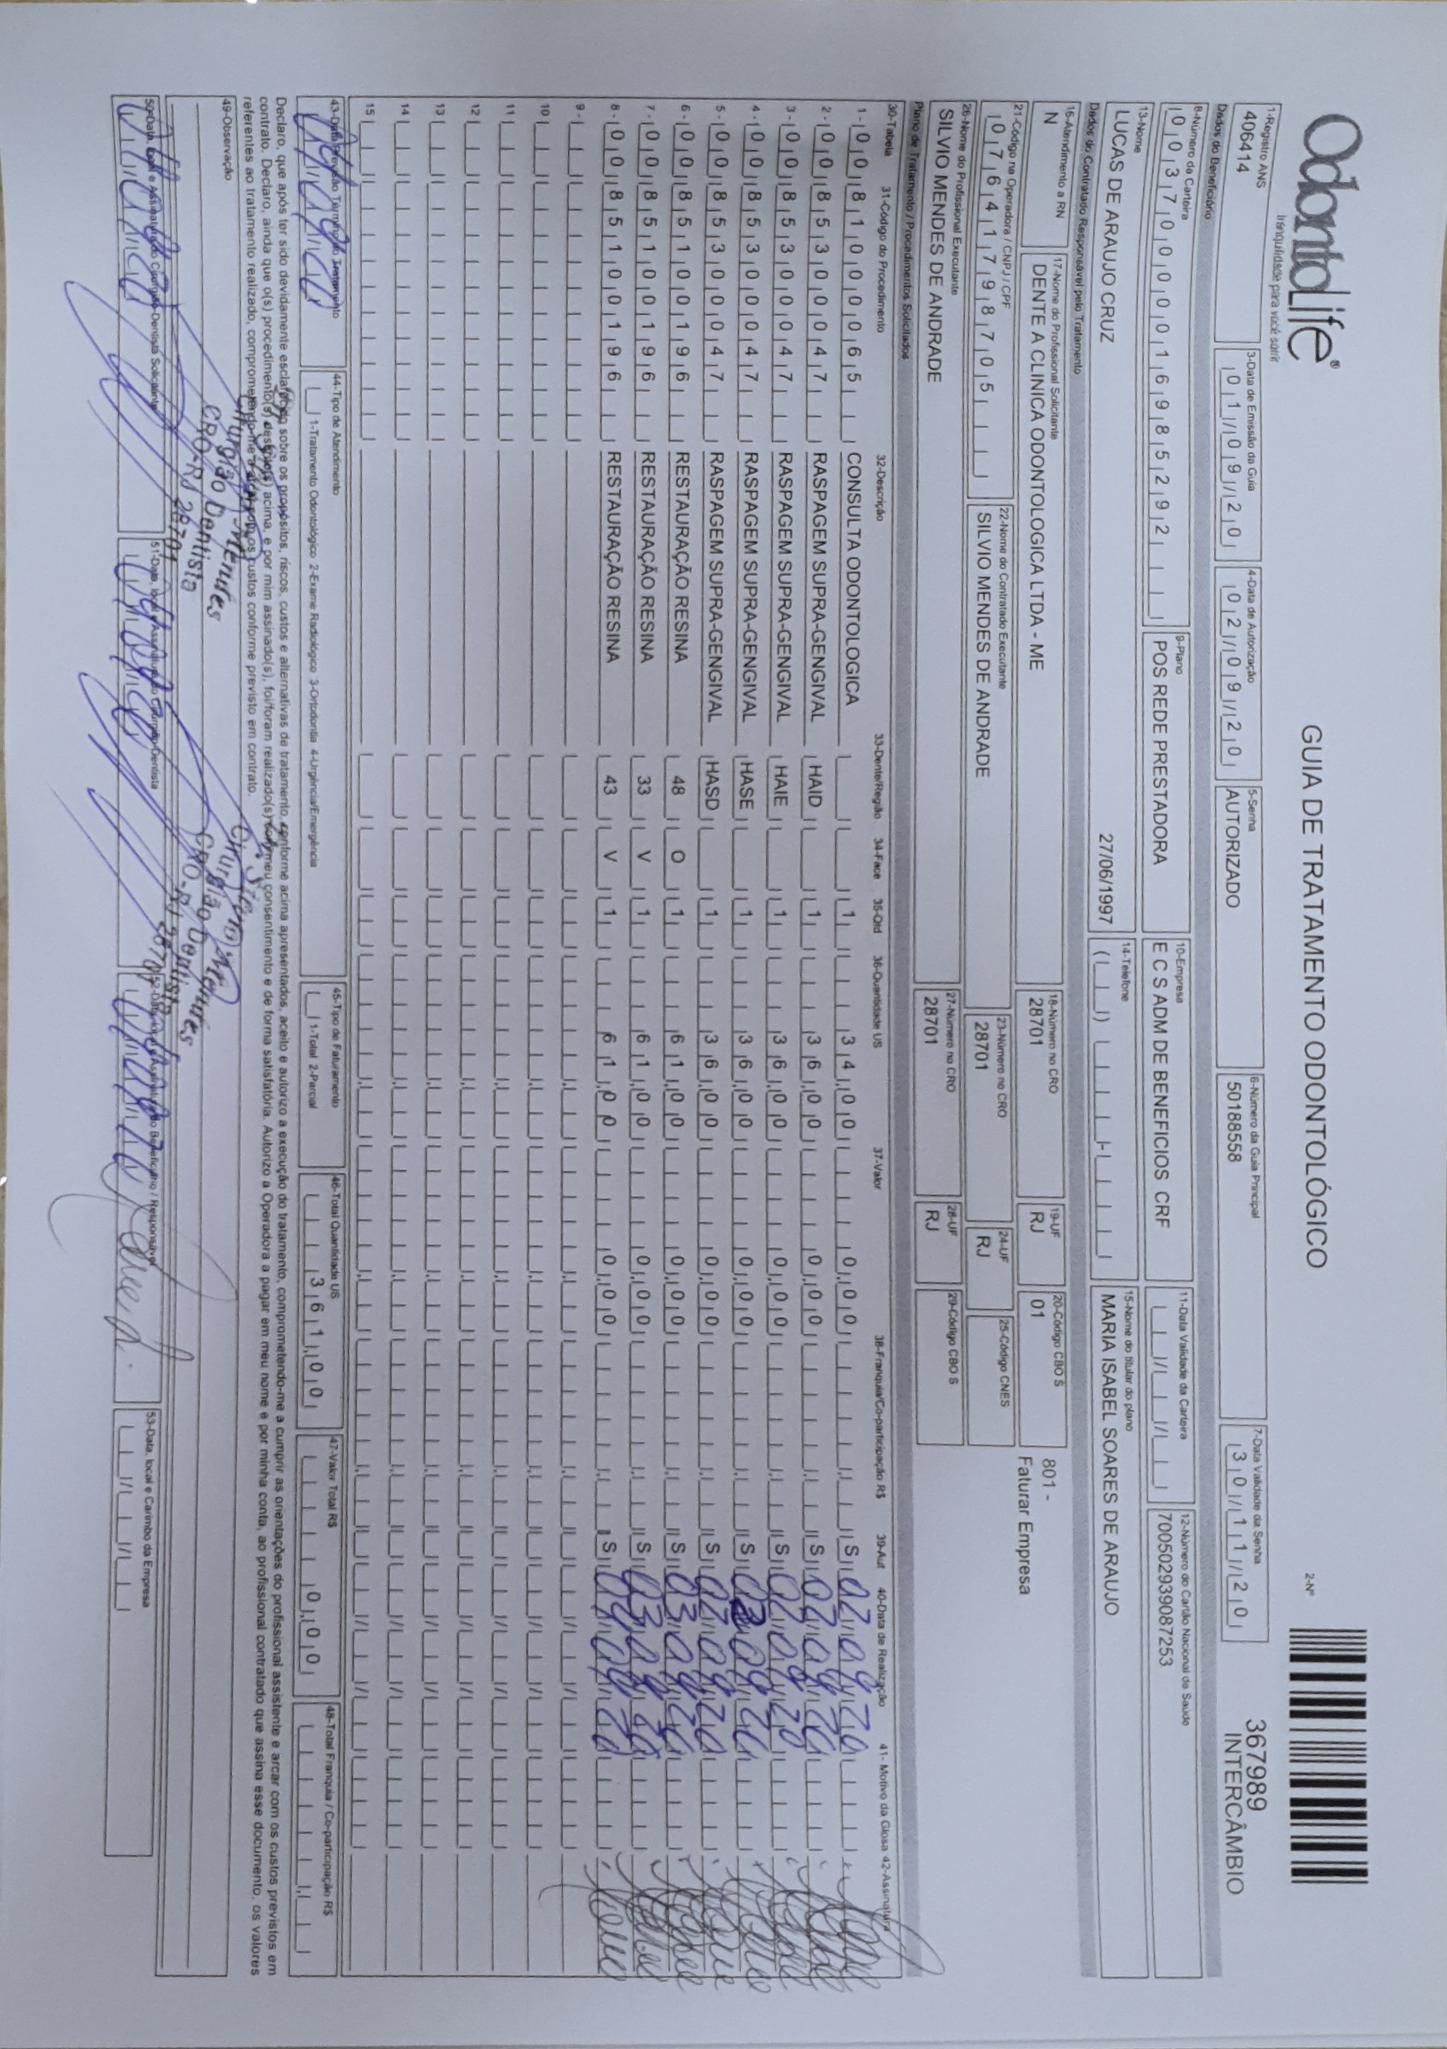 OdontoLife®
tranquilidade para você sorrir
GUIA DE TRATAMENTO ODONTOLÓGICO
2-Nº
367989
INTERCÂMBIO
1-Registro ANS
406414
3-Data de Emissão da Guia
01/09/20
4-Data de Autorização
02/09/20
5-Senha
AUTORIZADO
6-Número da Guia Principal
50188558
7-Data Validade da Senha
30/11/20
Dados do Beneficiário
8-Número da Carteira
0037000016985292
9-Plano
POS REDE PRESTADORA
10-Empresa
E C S ADM DE BENEFICIOS CRF
11-Data Validade da Carteira
12-Número do Cartão Nacional de Saúde
700502939087253
13-Nome
LUCAS DE ARAUJO CRUZ
27/06/1997
14-Telefone
15-Nome do titular do plano
MARIA ISABEL SOARES DE ARAUJO
Dados do Contratado Responsável pelo Tratamento
16-Atendimento a RN
N
17-Nome do Profissional Solicitante
DENTE A CLINICA ODONTOLOGICA LTDA - ME
18-Número no CRO
28701
19-UF
RJ
20-Código CBO S
01
801 -
Faturar Empresa
21-Código na Operadora / CNPJ / CPF
07641798705
22-Nome do Contratado Executante
SILVIO MENDES DE ANDRADE
23-Número no CRO
28701
24-UF
RJ
25-Código CNES
26-Nome do Profissional Executante
SILVIO MENDES DE ANDRADE
27-Número no CRO
28701
28-UF
RJ
29-Código CBO S
Plano de Tratamento / Procedimentos Solicitados
30-Tabela 31-Código do Procedimento 32-Descrição 33-Dente/Região 34-Face 35-Qtd 36-Quantidade US 37-Valor 38-Franquia/Co-participação R$ 39-Aut 40-Data de Realização 41- Motivo da Glosa 42-Assinatura
1- 00 81000065 CONSULTA ODONTOLOGICA 1 34,00 0,00 S 02/09/20
2- 00 85300047 RASPAGEM SUPRA-GENGIVAL HAID 1 36,00 0,00 S 02/09/20
3- 00 85300047 RASPAGEM SUPRA-GENGIVAL HAIE 1 36,00 0,00 S 02/09/20
4- 00 85300047 RASPAGEM SUPRA-GENGIVAL HASE 1 36,00 0,00 S 02/09/20
5- 00 85300047 RASPAGEM SUPRA-GENGIVAL HASD 1 36,00 0,00 S 02/09/20
6- 00 85100196 RESTAURAÇÃO RESINA 48 O 1 61,00 0,00 S 03/09/20
7- 00 85100196 RESTAURAÇÃO RESINA 33 V 1 61,00 0,00 S 03/09/20
8- 00 85100196 RESTAURAÇÃO RESINA 43 V 1 61,00 0,00 S 04/09/20
9-
10
11
12
13
14
15
43-Data Previsão Término Tratamento
44-Tipo de Atendimento
1-Tratamento Odontológico 2-Exame Radiológico 3-Ortodontia 4-Urgência/Emergência
45-Tipo de Faturamento
1-Total 2-Parcial
46-Total Quantidade US
361,00
47-Valor Total R$
0,00
48-Total Franquia / Co-participação R$
Declaro, que após ter sido devidamente esclarecido sobre os propósitos, riscos, custos e alternativas de tratamento, conforme acima apresentados, aceito e autorizo a execução do tratamento, comprometendo-me a cumprir as orientações do profissional assistente e arcar com os custos previstos em
contrato. Declaro, ainda que o(s) procedimento(s) descrito(s) acima, e por mim assinado(s), foi/foram realizado(s) com meu consentimento e de forma satisfatória. Autorizo a Operadora a pagar em meu nome e por minha conta, ao profissional contratado que assina esse documento, os valores
referentes ao tratamento realizado, comprometendo-me a arcar com os custos conforme previsto em contrato.
49-Observação
Cirurgião Dentista
CRO-RJ 28701
Cirurgião Dentista
CRO-RJ 28701
50-Data, local e Assinatura do Cirurgião-Dentista Solicitante
51-Data, local e Assinatura do Cirurgião-Dentista
52-Data, local e Assinatura do Beneficiário / Responsável
53-Data, local e Carimbo da Empresa